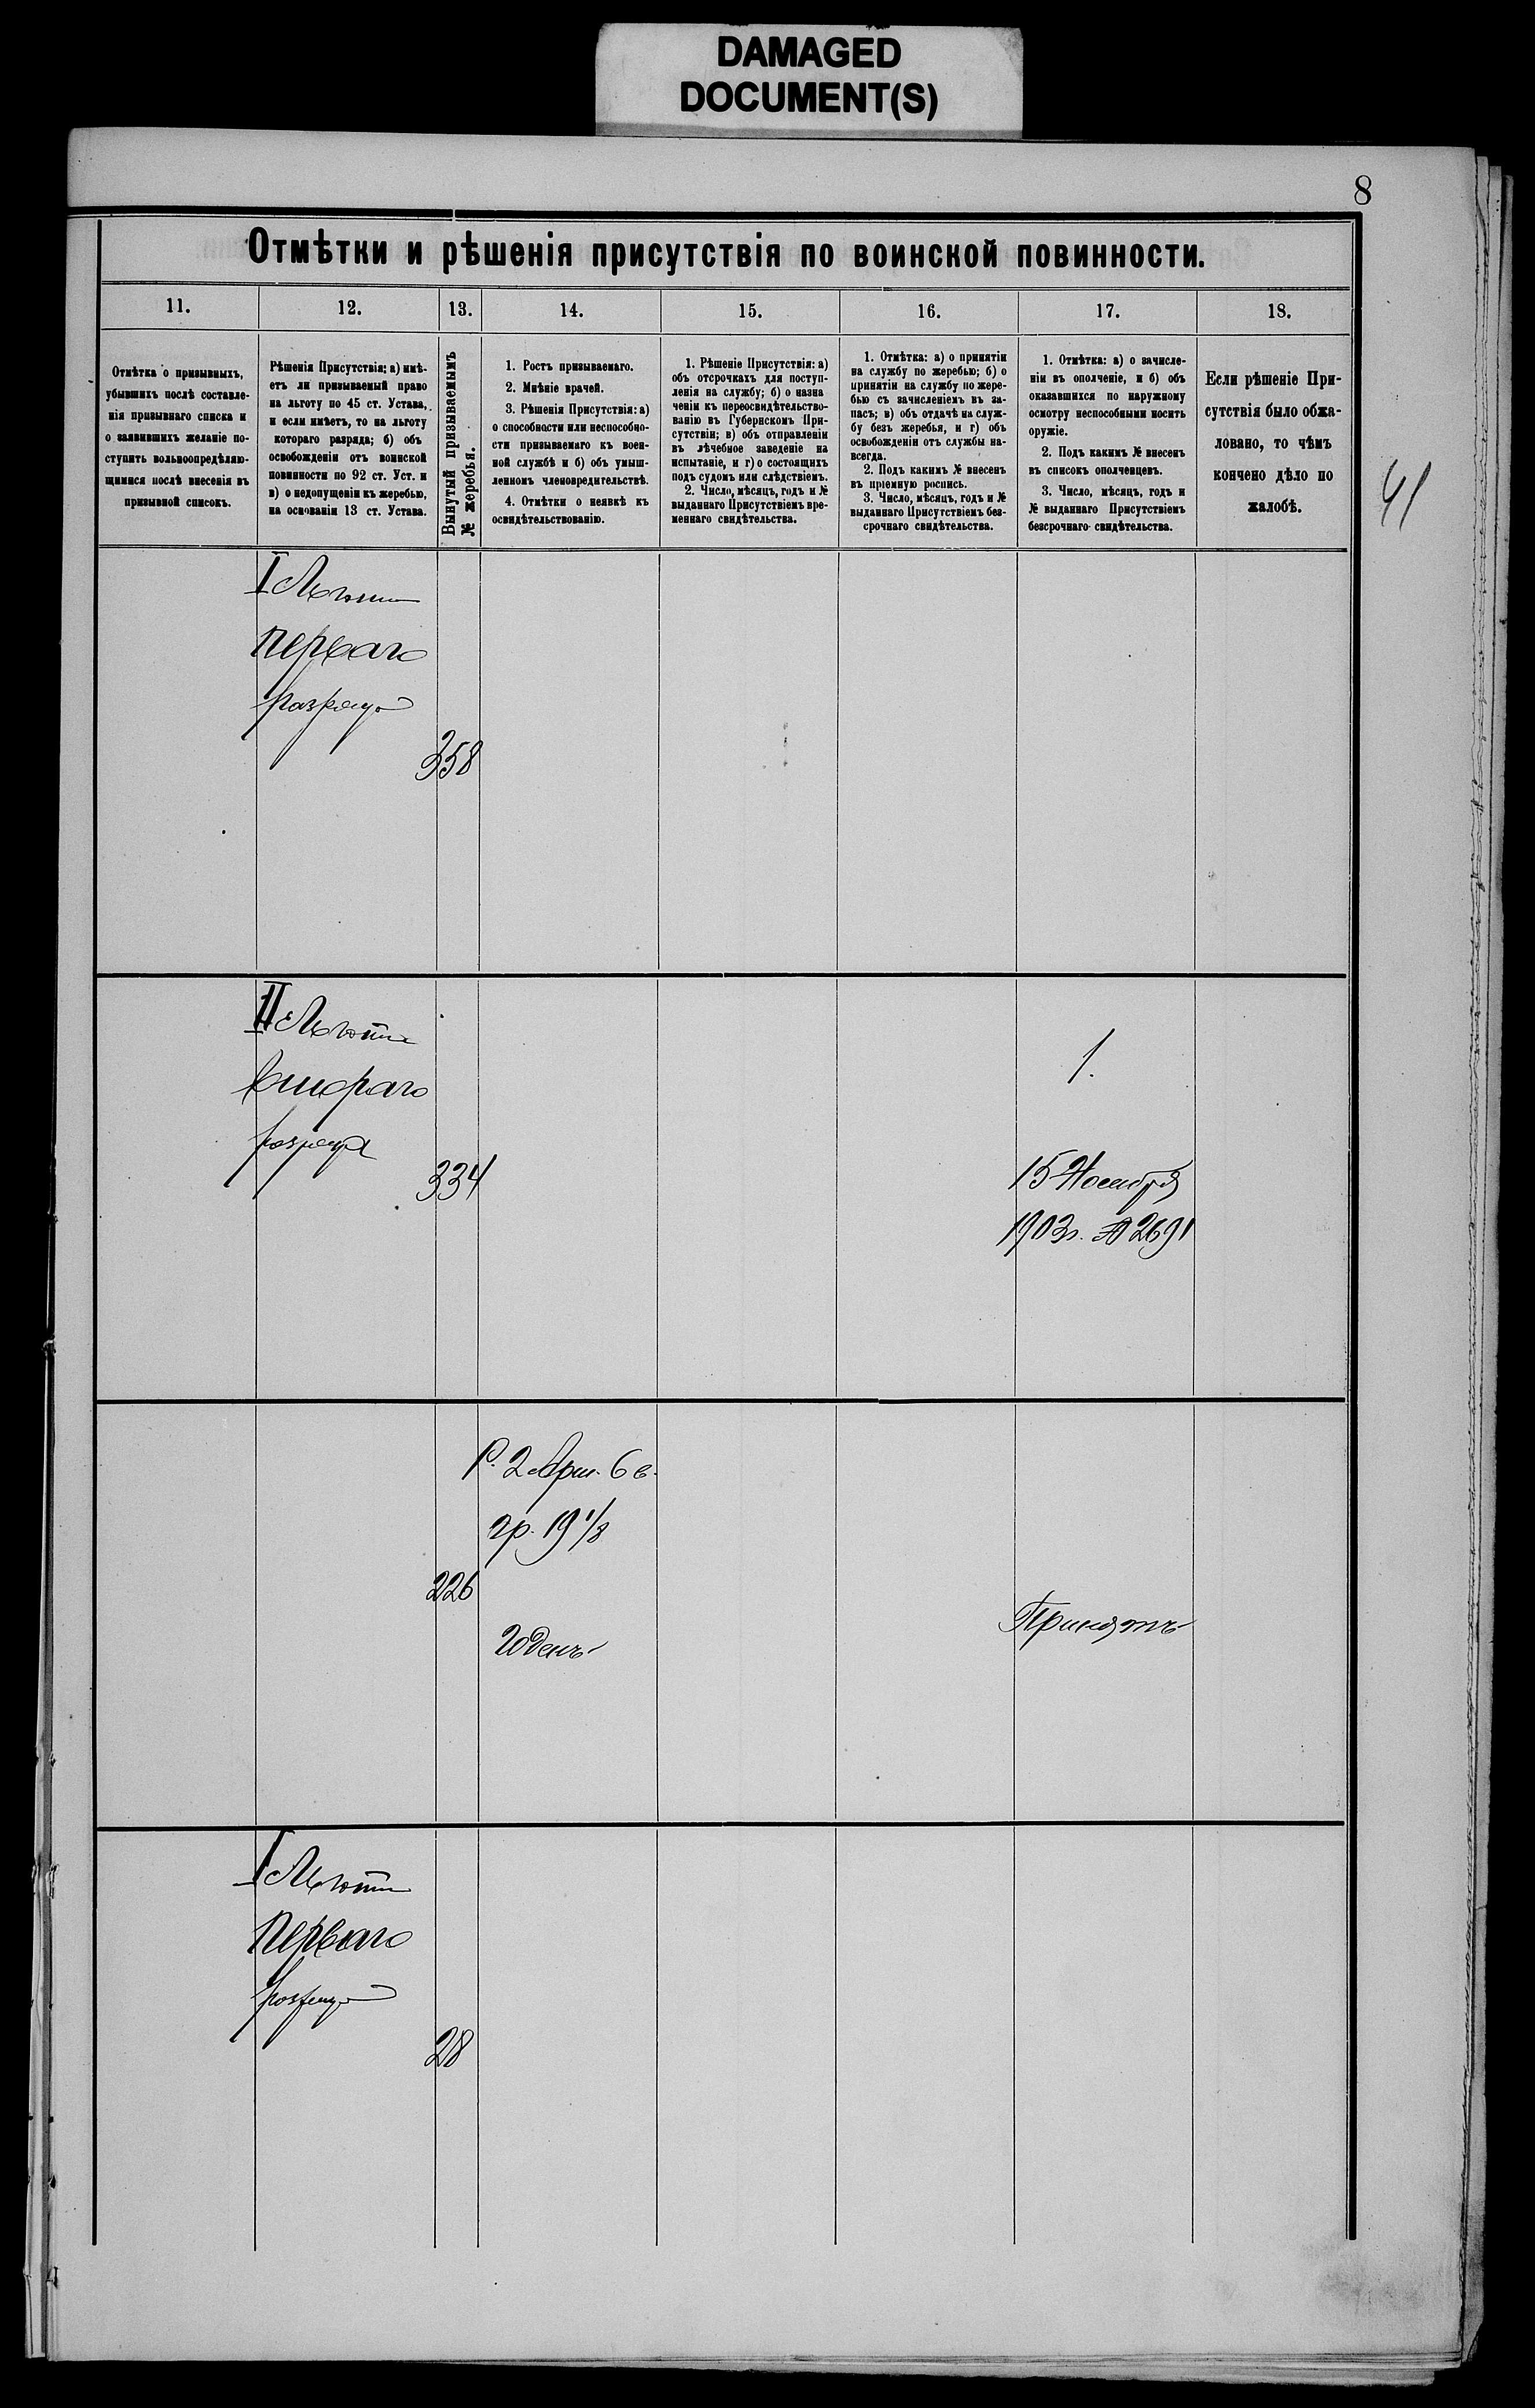 DAMAGED
DOCUMENT(S)
8
Отмѣтки и рѣшенія присутствія по воинской повинности.
11.
12.
13.
14.
15.
16.
17.
18.
Отмѣтка о призывныхъ,
убывшихъ послѣ составле-
нія призывнаго списка и
о заявившихъ желаніе по-
ступить вольноопредѣляю-
щимися послѣ внесенія въ
призывной списокъ.
Рѣшенія Присутствія: а) имѣ-
етъ ли призываемый право
на льготу по 45 ст. Устава,
и если имѣетъ, то на льготу
котораго разряда; б) объ
освобожденіи отъ воинской
повинности по 92 ст. Уст. и
в) о недопущеніи къ жеребью,
на основаніи 13 ст. Устава.
Вынутый призываемымъ
№ жеребья.
1. Ростъ призываемаго.
2. Мнѣніе врачей.
3. Рѣшенія Присутствія: а)
о способности или неспособно-
сти призываемаго къ воен-
ной службѣ и б) объ умыш-
ленномъ членовредительствѣ.
4. Отмѣтки о неявкѣ къ
освидѣтельствованію.
1. Рѣшеніе Присутствія: а)
объ отсрочкахъ для поступ-
ленія на службу; б) о назна
ченіи къ переосвидѣтельство-
ванію въ Губернскомъ При-
сутствіи; в) объ отправленіи
въ лѣчебное заведеніе на
испытаніе, и г) о состоящихъ
подъ судомъ или слѣдствіемъ.
2. Число, мѣсяцъ, годъ и №
выданнаго Присутствіемъ вре-
меннаго свидѣтельства.
1. Отмѣтка: а) о принятіи
на службу по жеребью; б) о
принятіи на службу по жере-
бью съ зачисленіемъ въ за-
пасъ; в) объ отдачѣ на служ-
бу безъ жеребья, и г) объ
освобожденіи отъ службы на-
всегда.
2. Подъ какимъ № внесенъ
въ пріемную роспись.
3. Число, мѣсяцъ, годъ и №
выданнаго Присутствіемъ без-
срочнаго свидѣтельства.
1. Отмѣтка: а) о зачисле-
ніи въ ополченіе, и б) объ
оказавшихся по наружному
осмотру неспособными носить
оружіе.
2. Подъ какимъ № внесенъ
въ списокъ ополченцевъ.
3. Число, мѣсяцъ, годъ и
№ выданнаго Присутствіемъ
безсрочнаго свидѣтельства.
Если рѣшеніе При-
сутствія было обжа-
ловано, то чѣмъ
кончено дѣло по
жалобѣ.
41
I Льготы
перваго
разряда
358
II Льготы
втораго
разряда
334
1.
15 Ноября
1903 г. № 2691
Р. 2 Арш. 6 в.
гр. 19 1/8
226
Годенъ
Принятъ
I Льготы
перваго
разряда
28